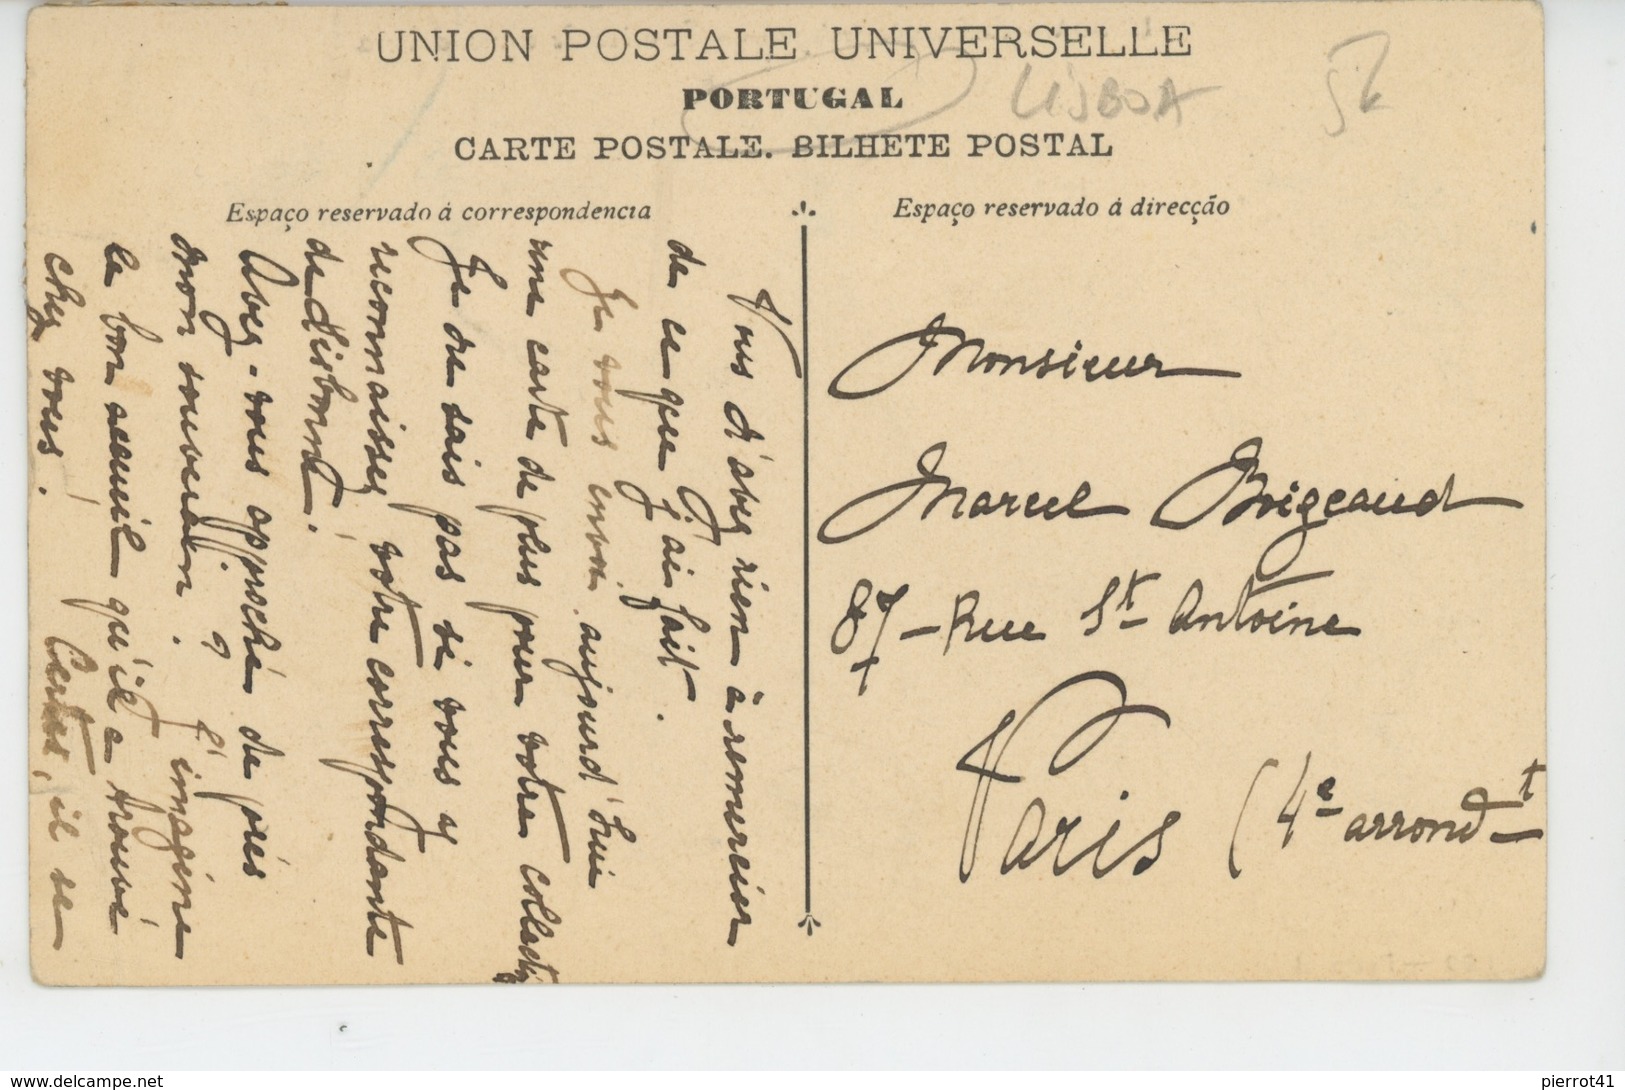 UNION POSTALE UNIVERSELLE
PORTUGAL
CARTE POSTALE. BILHETE POSTAL
LISBOA
Espaço reservado á correspondencia
Espaço reservado á direcção
Vous n'avez rien à remercier
de ce que j'ai fait.
Je vous envoi aujourd'hui
une carte de plus pour votre collect
Je ne sais pas si vous y
reconnaissez votre correspondante
de Lisbonne.
Avez-vous approché de près
mon souverain ?
J'imagine
le bon accueil qu'il a trouvé
chez vous !
Certes, il se
Monsieur
Marcel Boigeaud
87 - Rue St Antoine
Paris (4e arrondt
pierrot41